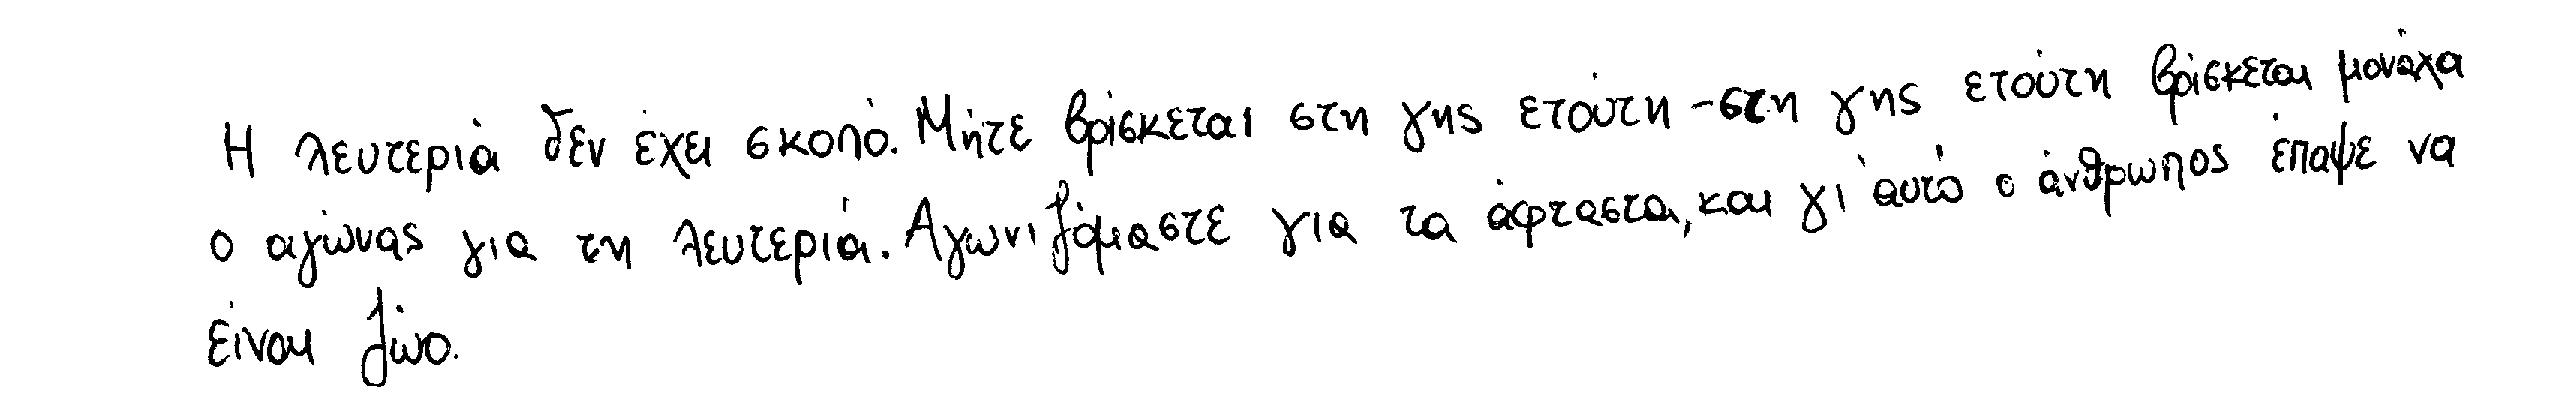 Η λευτεριά δεν έχει σκοπό. Μήτε βρίσκεται στη γης ετούτη - στη γης ετούτη βρίσκεται μονάχα
ο αγώνας για τη λευτεριά. Αγωνιζόμαστε για τα άφταστα, και γι' αυτό ο άνθρωπος έπαψε να
είναι ζώο.